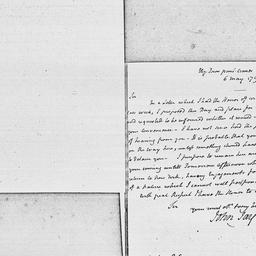 6 May 179
Sir
In a Letter which I had the Honor of
this week, I proposed this Day and place for
and requested to be informed whether it would
your convenience - I have not since had the
of hearing from you - It is probable that you
on the way here, unless something should have
to detain you - I propose to remain here
your coming until Tomorrow afternoon
return to New York, having engagements
of a nature which I cannot well postpone
with great Respect I have the Honor to
Sir
your most ob.
John Jay